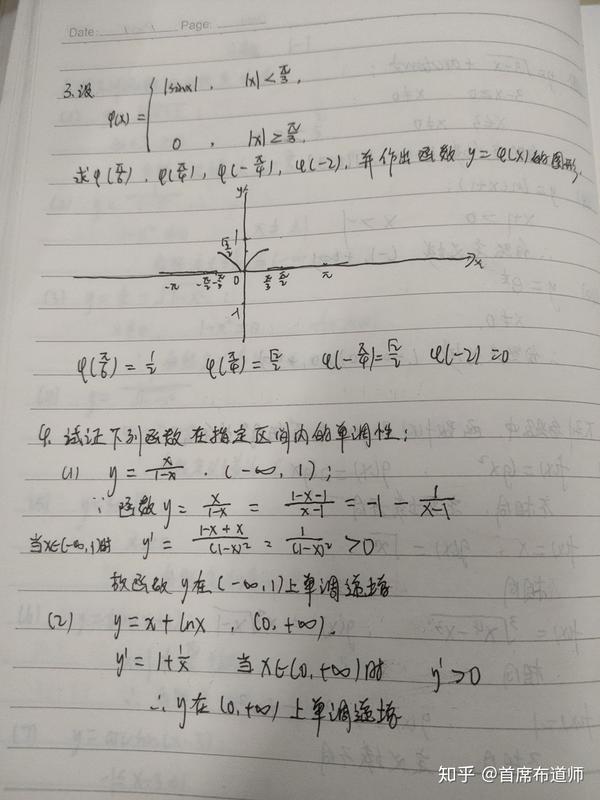 Date: Page:
3. 设 φ(x) = { |sinx|, |x| < π/3,
0, |x| ≥ π/3.
求 φ(π/6), φ(π/4), φ(-π/4), φ(-2), 并作出函数 y = φ(x) 的图形.
y
1
√2/2
-π -π/2 -π/3 0 π/3 π/2 π x
-1
φ(π/6) = 1/2 φ(π/4) = √2/2 φ(-π/4) = √2/2 φ(-2) = 0
4. 试证下列函数在指定区间内的单调性:
(1) y = x/(1-x), (-∞, 1);
∵ 函数 y = x/(1-x) = (1-x-1)/(x-1) = -1 - 1/(x-1)
当x∈(-∞,1)时 y' = (1-x+x)/(1-x)² = 1/(1-x)² > 0
故函数 y 在 (-∞, 1) 上单调递增
(2) y = x + lnx, (0, +∞).
y' = 1 + 1/x 当 x∈(0, +∞) 时 y' > 0
∴ y 在 (0, +∞) 上单调递增
知乎 @首席布道师